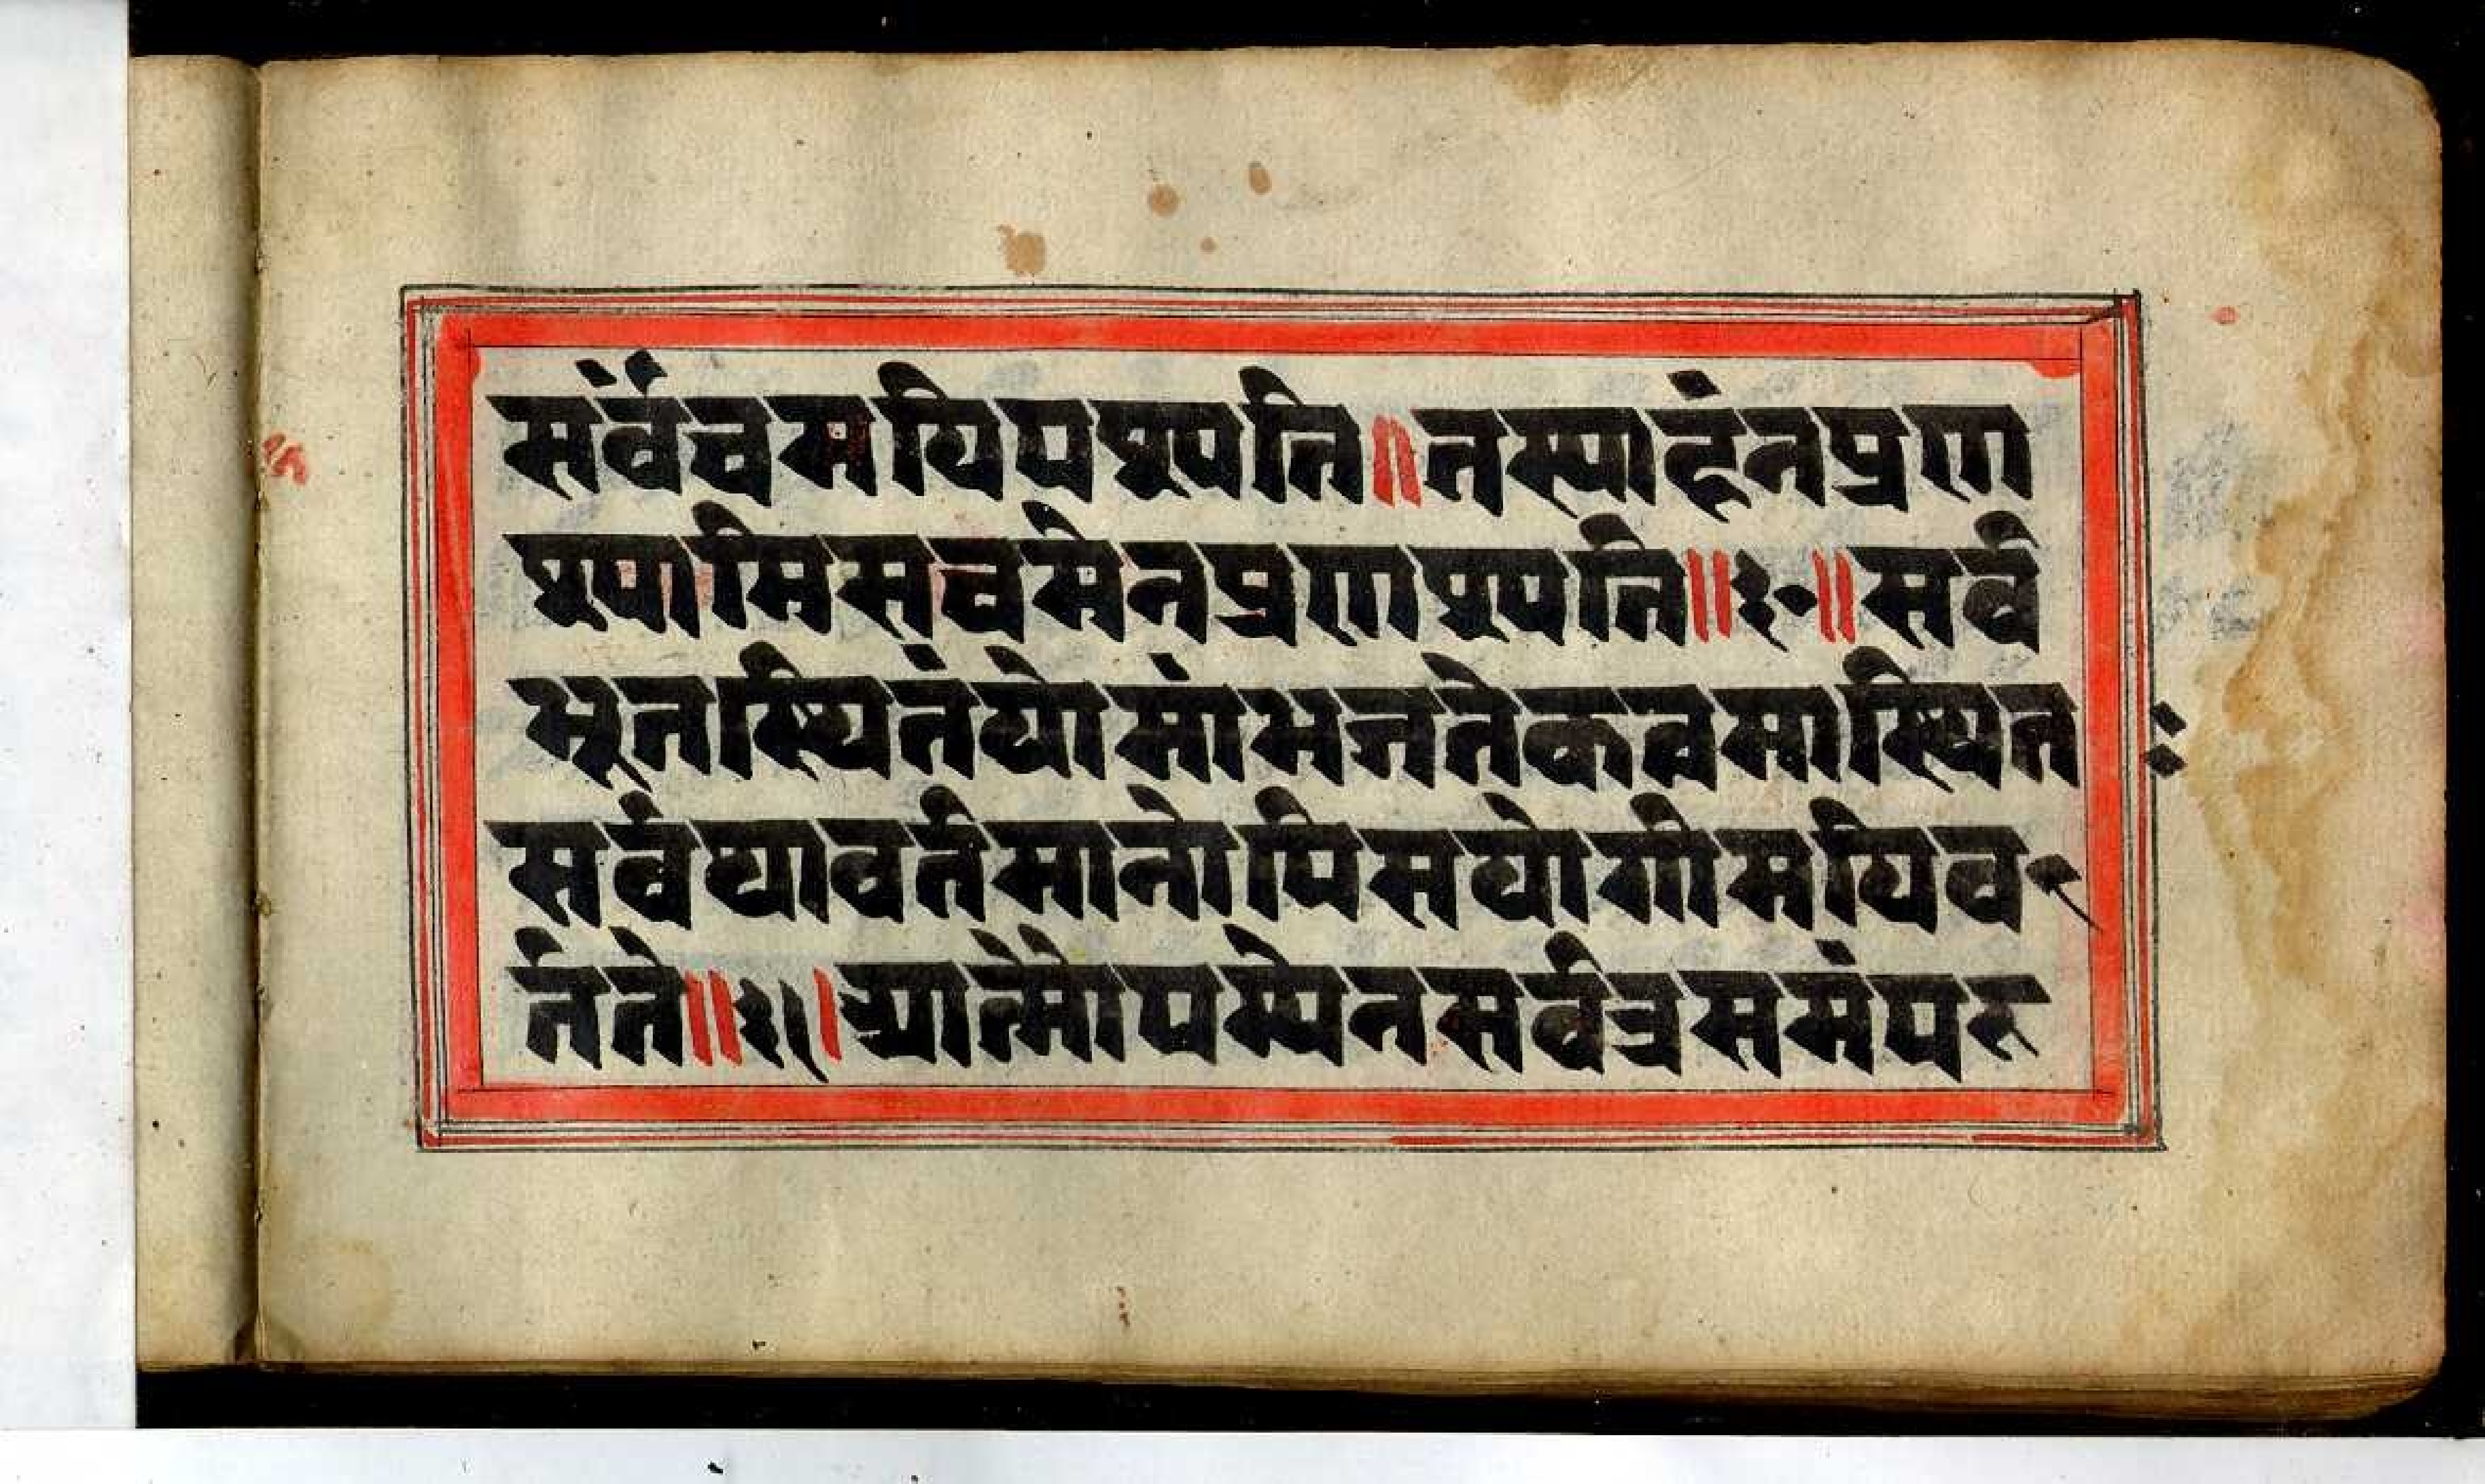 सर्वंचमयिपश्यति॥तस्याहंनप्रण
श्यामिसचमेनप्रणश्यति॥३०॥सर्व
भूतस्थितंयोमांभजत्तेकत्वमास्थितः
सर्वथावर्तमानोपिसयोगीमयिव
र्तते॥३१॥आत्मौपम्येनसर्वत्रसमंपश